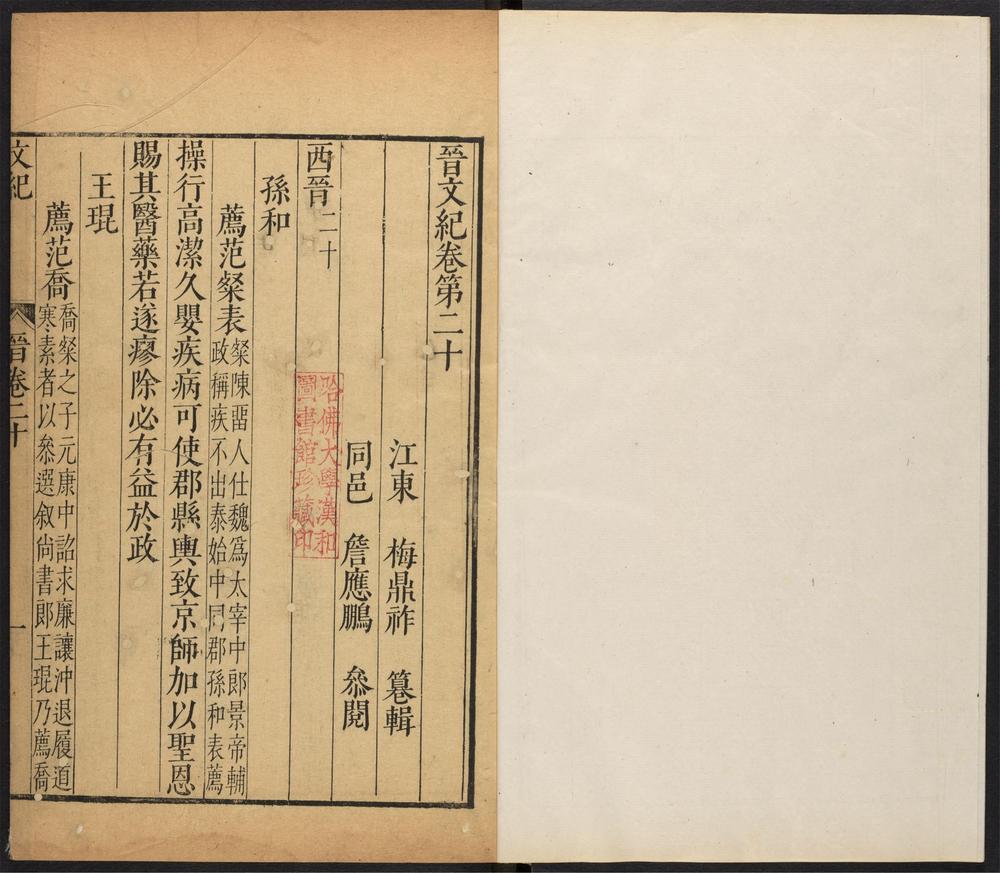 晉文紀卷第二十
江東 梅鼎祚 篹輯
同邑 詹應鵬 叅閱
西晉二十
孫和
薦范粲表粲陳畱人仕魏爲太宰中郎景帝輔
政稱疾不出泰始中同郡孫和表薦
操行高潔久嬰疾病可使郡縣輿致京師加以聖恩
賜其醫藥若遂瘳除必有益於政
王琨
薦范喬喬粲之子元康中詔求廉讓沖退履道
寒素者以叅選叙尚書郎王琨乃薦喬
文紀 晉卷二十 一
哈佛大學漢和
圖書館珍藏印